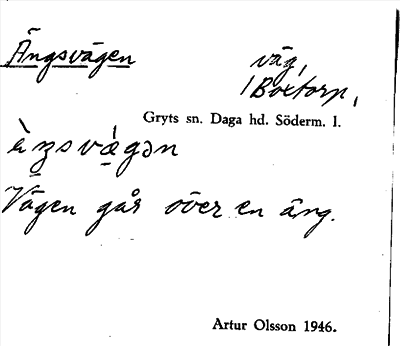 Ängsvägen
väg,
Boxtorp,
Gryts sn. Daga hd. Söderm. l.
Vägen går över en äng.
Artur Olsson 1946.